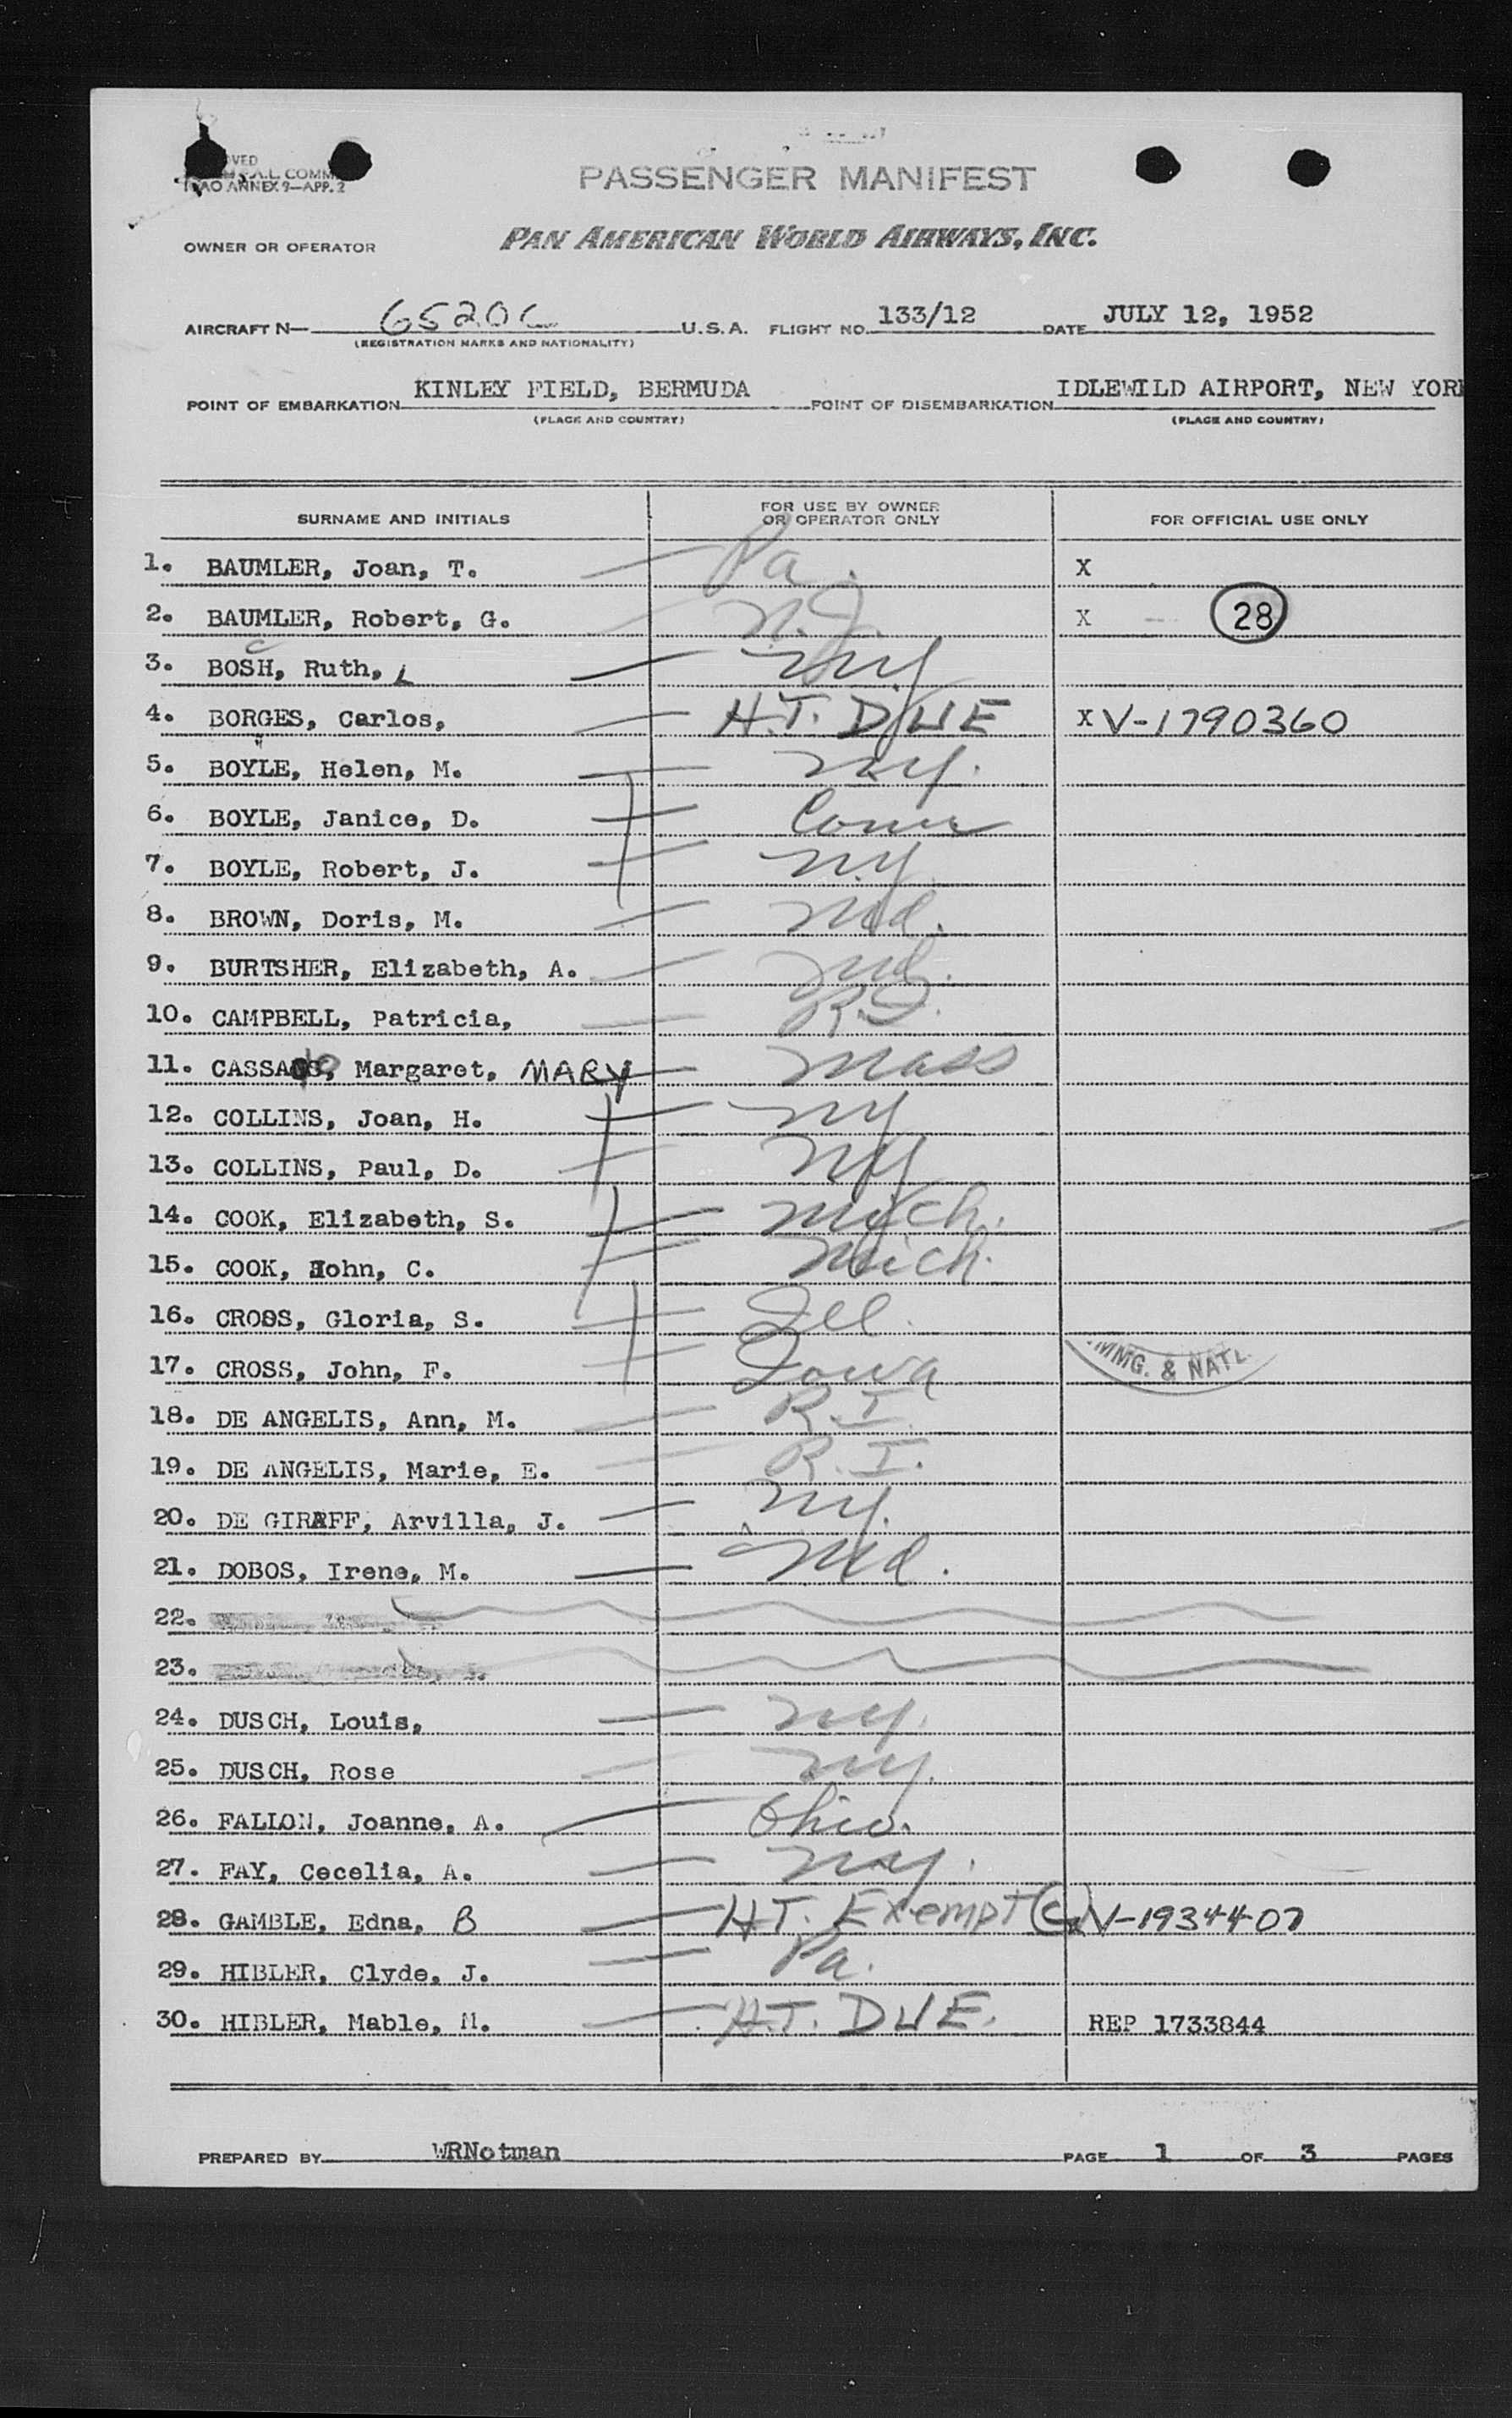 OVED
A.L COMM
ICAO ANNEX 9—APP. 2
PASSENGER MANIFEST
OWNER OR OPERATOR PAN AMERICAN WORLD AIRWAYS, INC.
AIRCRAFT N— 6520C U.S.A. FLIGHT NO. 133/12 DATE JULY 12, 1952
(REGISTRATION MARKS AND NATIONALITY)
POINT OF EMBARKATION KINLEY FIELD, BERMUDA POINT OF DISEMBARKATION IDLEWILD AIRPORT, NEW YORK
(PLACE AND COUNTRY) (PLACE AND COUNTRY)
SURNAME AND INITIALS FOR USE BY OWNER OR OPERATOR ONLY FOR OFFICIAL USE ONLY
1. BAUMLER, Joan, T. Pa. X
2. BAUMLER, Robert, G. N.J. X 28
3. BOSH, Ruth, L c NY
4. BORGES, Carlos, H.T. DUE X V-1790360
5. BOYLE, Helen, M. NY.
6. BOYLE, Janice, D. Conn
7. BOYLE, Robert, J. NY
8. BROWN, Doris, M. Md.
9. BURTSHER, Elizabeth, A.
10. CAMPBELL, Patricia, R.I.
11. Margaret, MARY Mass
12. COLLINS, Joan, H. NY
13. COLLINS, Paul, D. NY
14. COOK, Elizabeth, S. Mich.
15. COOK, John, C. Mich.
16. CROSS, Gloria, S. Ill.
17. CROSS, John, F. Iowa IMMG. & NATL
18. DE ANGELIS, Ann, M. R.I.
19. DE ANGELIS, Marie, E. R.I.
20. DE GIRAFF, Arvilla, J. NY.
21. DOBOS, Irene, M. Md.
22.
23.
24. DUSCH, Louis, NY.
25. DUSCH, Rose NY.
26. FALLON, Joanne, A. Ohio.
27. FAY, Cecelia, A. NY.
28. GAMBLE, Edna, B H.T. Exempt V-1934407
29. HIBLER, Clyde, J. Pa.
30. HIBLER, Mable, M. H.T. DUE. REP 1733844
PREPARED BY WRNotman PAGE 1 OF 3 PAGES